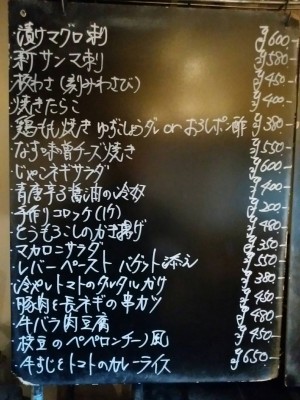 ・漬けマグロ刺 ¥600
・新サンマ刺 ¥580
・板わさ(刻みわさび) ¥450
・焼きたらこ ¥400
・鶏もも焼き ゆずこしょうダレ or おろしポン酢 ¥380
・なすの味噌チーズ焼き ¥550
・じゃこネギサラダ ¥600
・青唐辛子醤油の冷奴 ¥400
・手作りコロッケ(1ケ) ¥200
・とうもろこしのかき揚げ ¥480
・マカロニサラダ ¥350
・レバーペースト バゲット添え ¥550
・冷やしトマトのタルタルガケ ¥380
・豚肉と長ネギの串カツ ¥450
・牛バラ肉豆腐 ¥480
・枝豆のペペロンチーノ風 ¥450
・牛すじとトマトのカレーライス ¥650